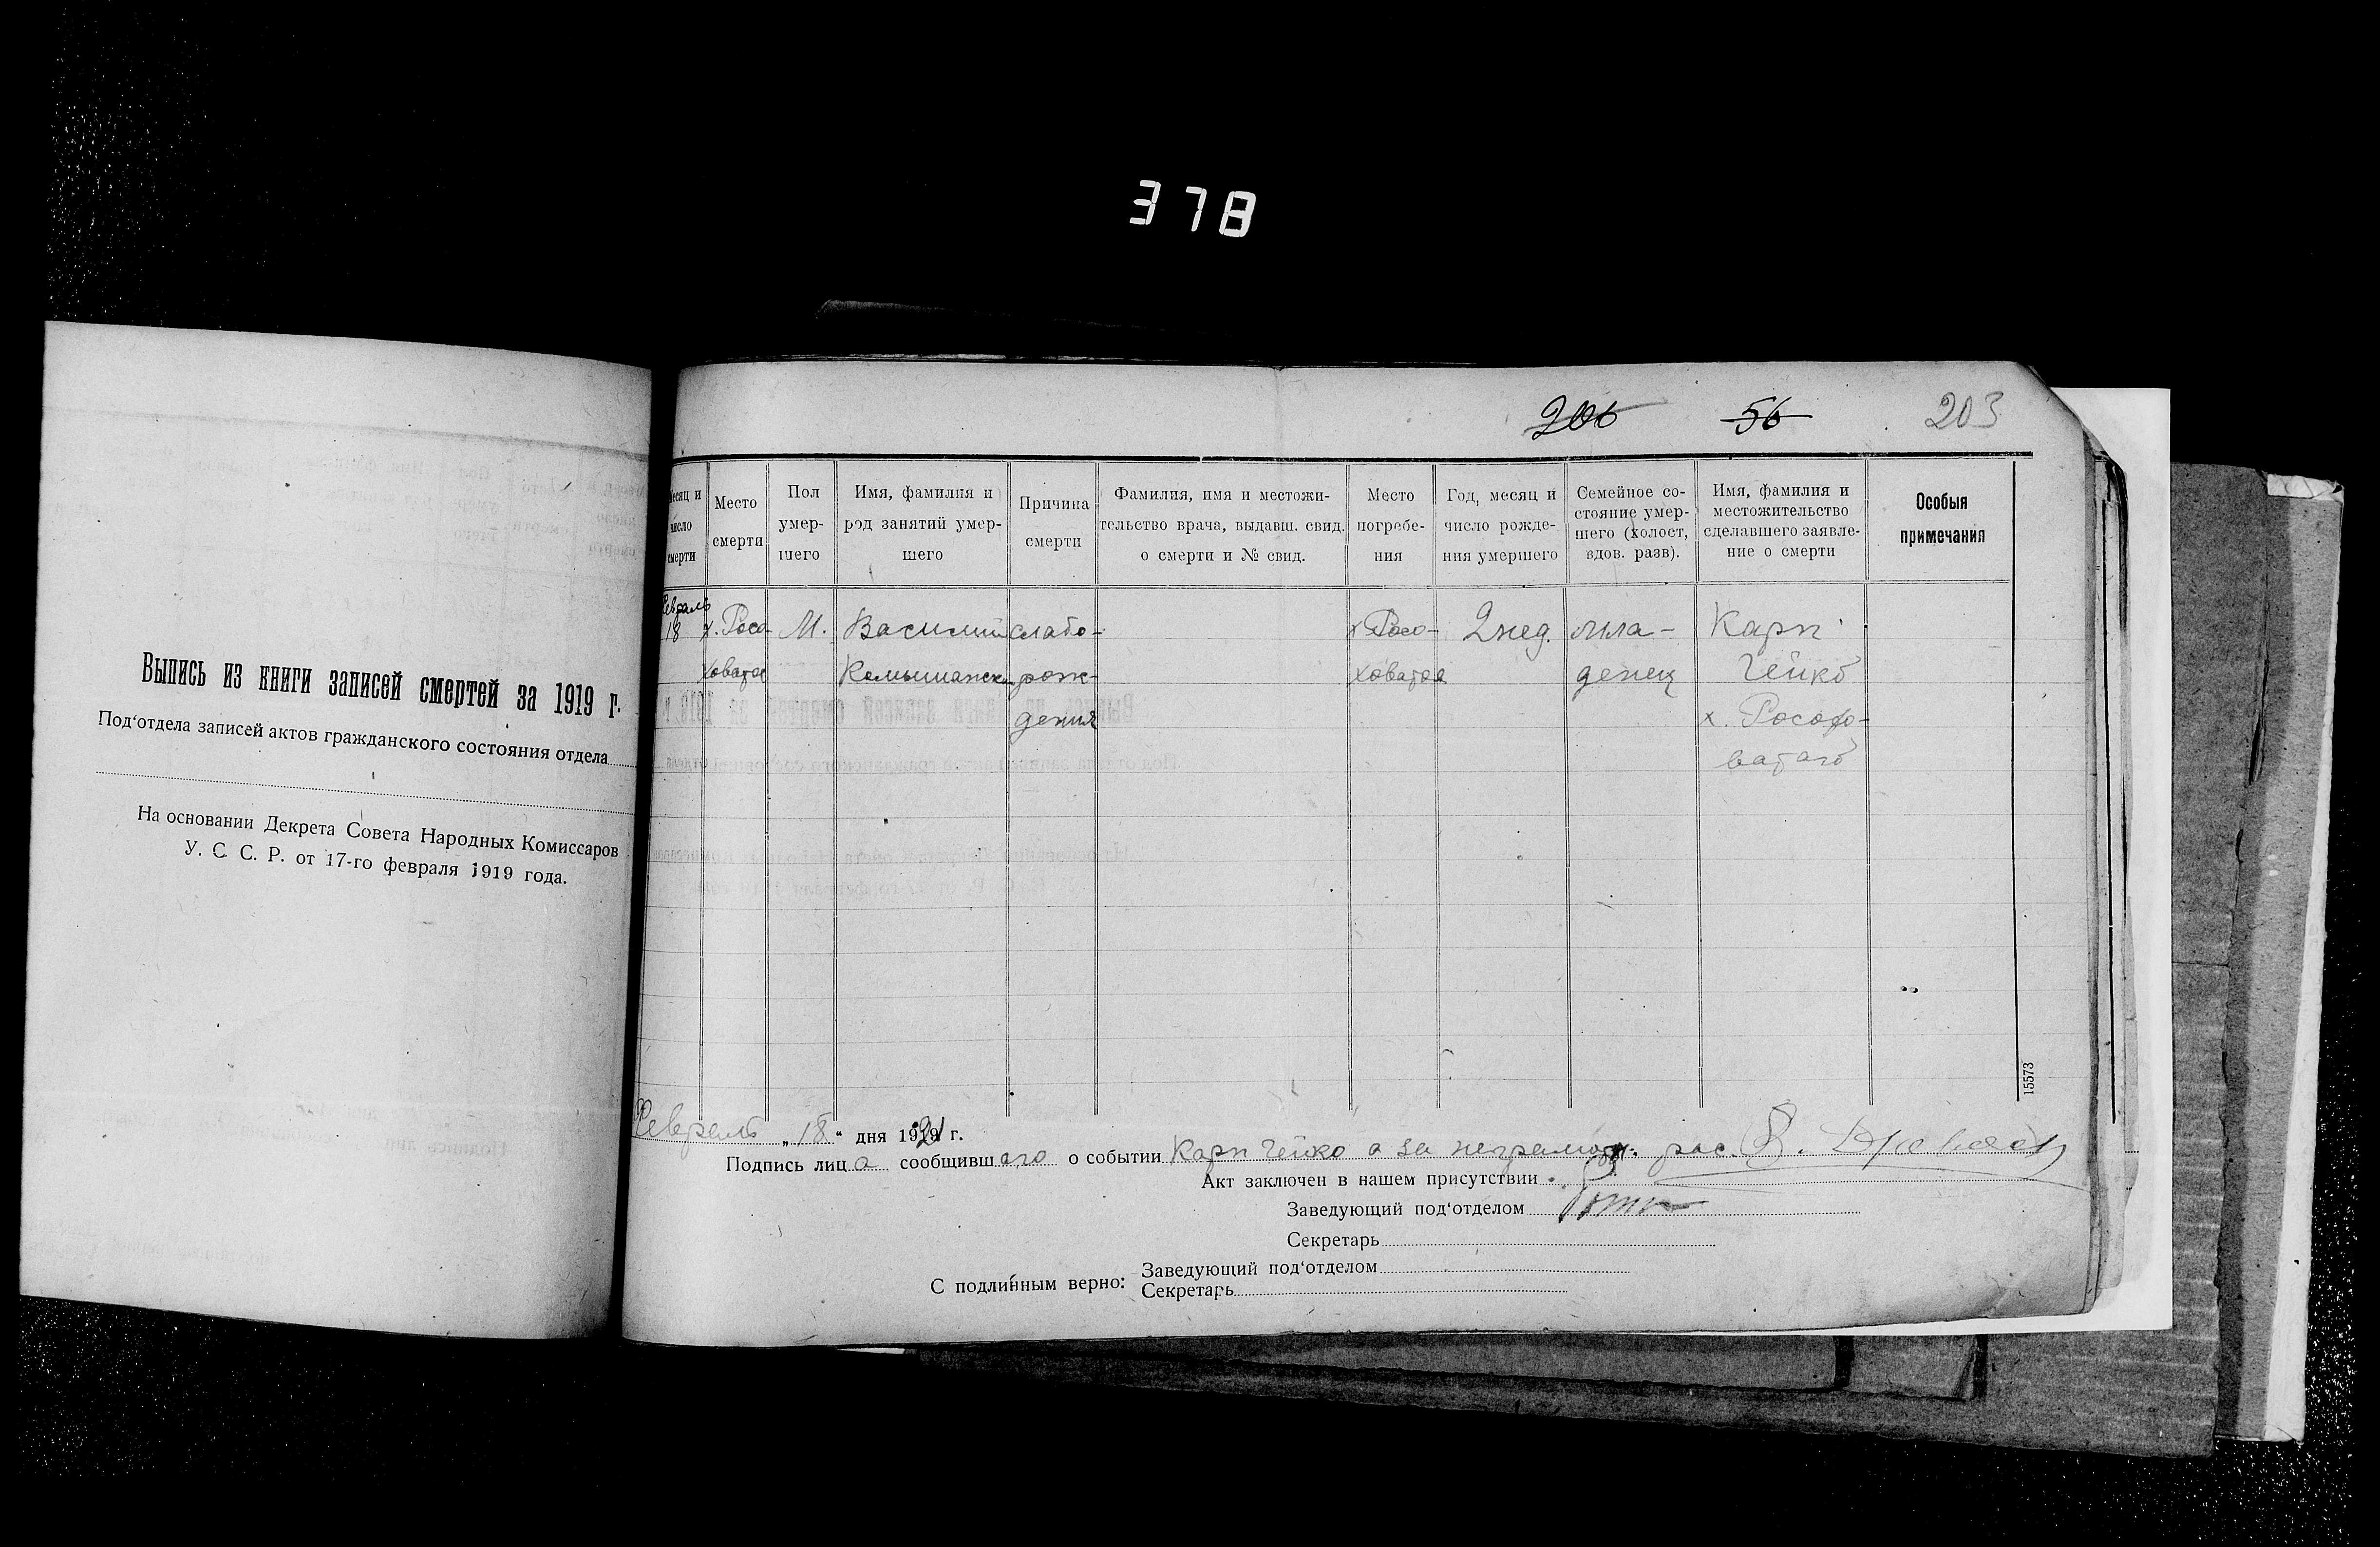 378
Выпись из книги записей смертей за 1919 г.
Под‘отдела записей актов гражданского состояния отдела
На основании Декрета Совета Народных Комиссаров
У. С. С. Р. от 17-го февраля 1919 года.
206 56 203
Месяц и число смерти
Место смерти
Пол умер-шего
Имя, фамилия и род занятий умер-шего
Причина смерти
Фамилия, имя и местожи-тельство врача, выдавш. свид. о смерти и № свид.
Место погребе-ния
Год, месяц и число рожде-ния умершего
Семейное со-стояние умер-шего (холост, вдов. разв).
Имя, фамилия и местожительство сделавшего заявле-ние о смерти
Особыя примечания
Февраль
18 х. Росо- М. Василий слабо- х Росо- 2 нед. мла- Карп
ховатое рож- ховатое денец Чейко
дения х. Росохо-
ватаго
15573
Февраль „18“ дня 1921 г.
Подпись лица сообщившаго о событии Карп Чейко а за неграмот. рос.
Акт заключен в нашем присутствии
Заведующий под‘отделом
Секретарь
С подлинным верно: Заведующий под‘отделом
Секретарь